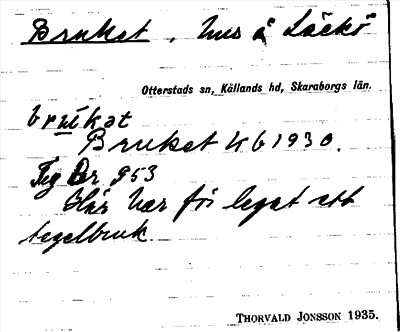 Bruket, hus å Läckö
Otterstads sn, Källands hd, Skaraborgs län.
brukat
Bruket kb 1930.
953
Här har för legat ett
tegelbruk.
THORVALD JONSSON 1935.